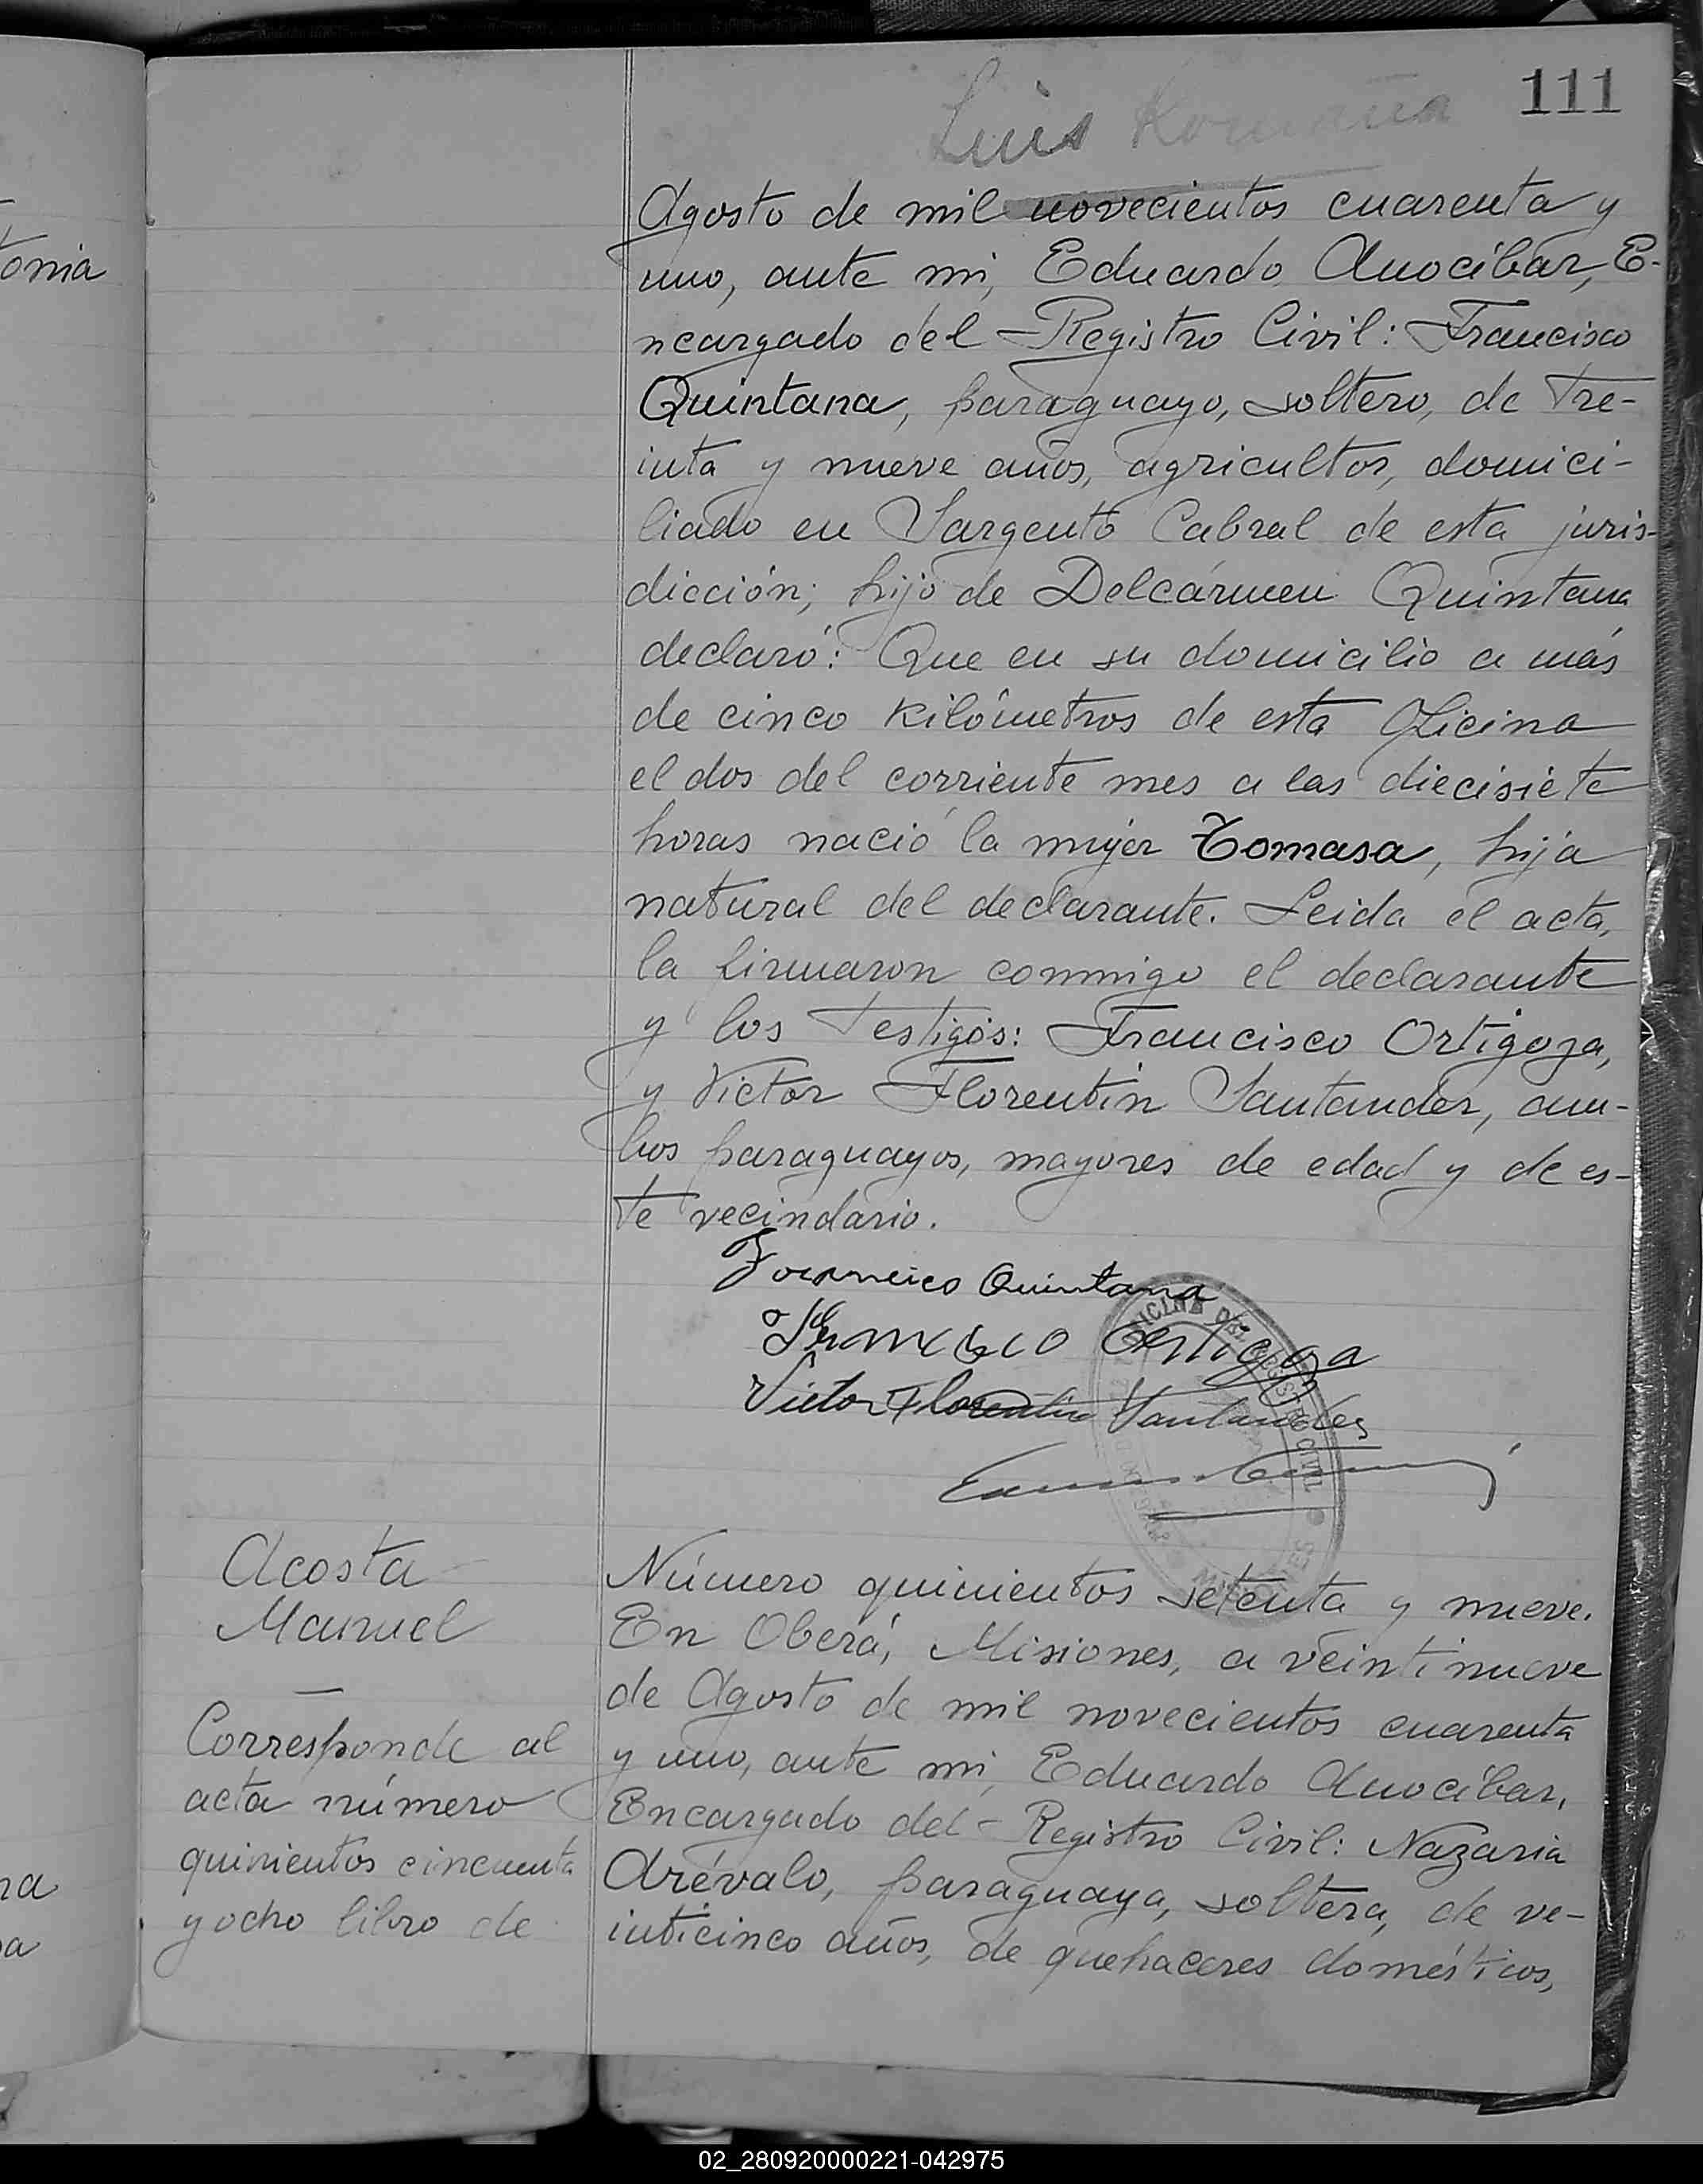 111
Luis Romaña
Agosto de mil novecientos cuarenta y
uno, ante mi, Eduardo Anocíbar, E-
ncargado del Registro Civil: Francisco
Quintana, paraguayo, soltero, de tre-
inta y nueve años, agricultor, domici-
liado en Sargento Cabral de esta juris-
dicción; hijo de Delcármen Quintana
declaró: Que en su domicilio a más
de cinco kilómetros de esta Oficina
el dos del corriente mes a las diecisiete
horas nació la mujer Tomasa, hija
natural del declarante. Leida el acta,
la firmaron conmigo el declarante
y los testigos: Francisco Ortigoza,
y Victor Florentin Santander, am-
bos paraguayos, mayores de edad y de es-
te vecindario.
Francisco Quintana
Francisco Ortigoza
Victor Florentin Santander
OFICINA DEL REGISTRO CIVIL
MISIONES
Acosta
Manuel
Corresponde al
acta número
quinientos cincuenta
y ocho libro de
Número quinientos setenta y nueve.
En Oberá, Misiones, a veintinueve
de Agosto de mil novecientos cuarenta
y uno, ante mi, Eduardo Anocíbar,
Encargado del Registro Civil: Nazaria
Arévalo, paraguaya, soltera, de ve-
inticinco años, de quehaceres domésticos,
onia
na
a
02_280920000221-042975